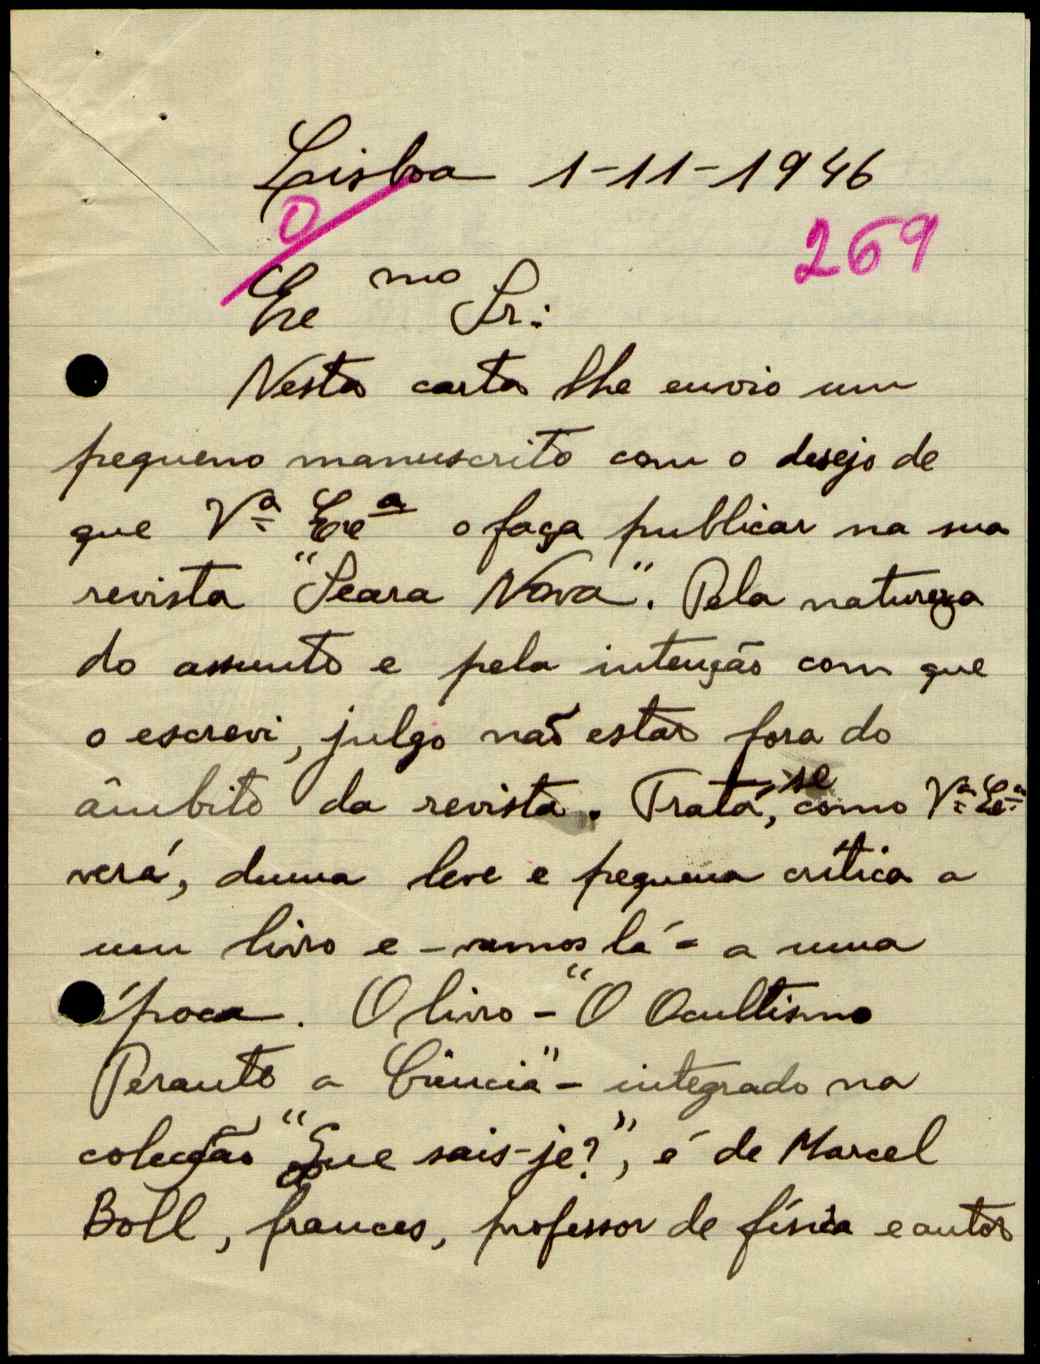 Lisboa 1-11-1946
0
269
Exc mo Sr:
Nesta carta lhe envio um
pequeno manuscrito com o desejo de
que Vª Excª o faça publicar na sua
revista "Seara Nova". Pela natureza
do assunto e pela intenção com que
o escrevi, julgo não estar fora do
âmbito da revista. Trata-se, como Vª Excª
verá, duma leve e pequena crítica a
um livro e - vamos lá - a uma
época. O livro - "O Ocultismo
Perante a Ciência" - integrado na
colecção "Que sais-je?", é de Marcel
Boll, frances, professor de física e autor